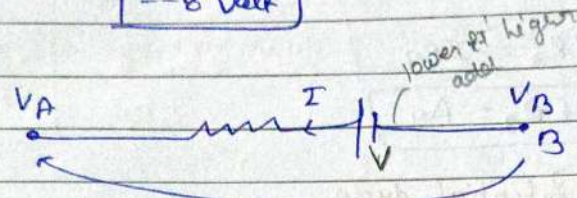 -- 8 Volt
lower से higher
add
V_A I V_B
B
V